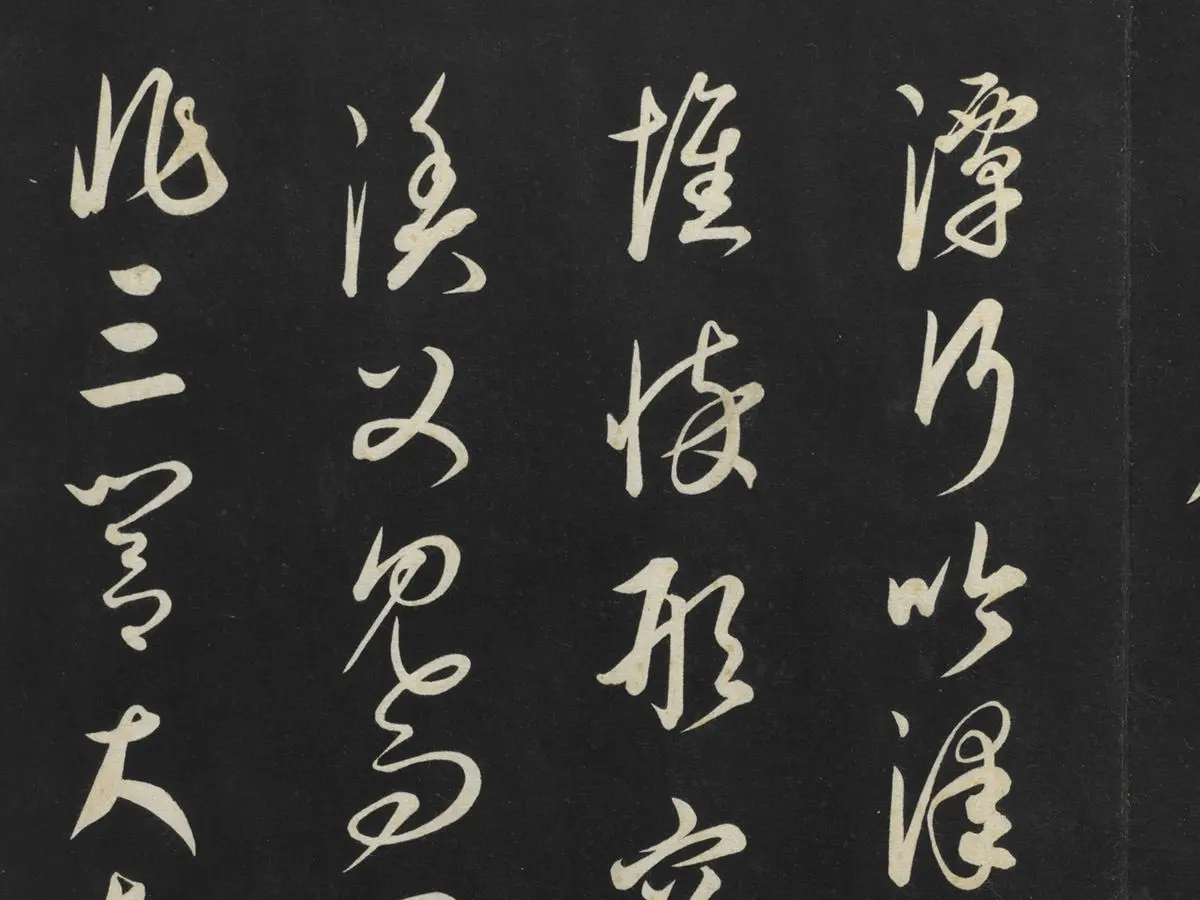 潭行吟澤
憔悴形容
漁父見而
非三閭大